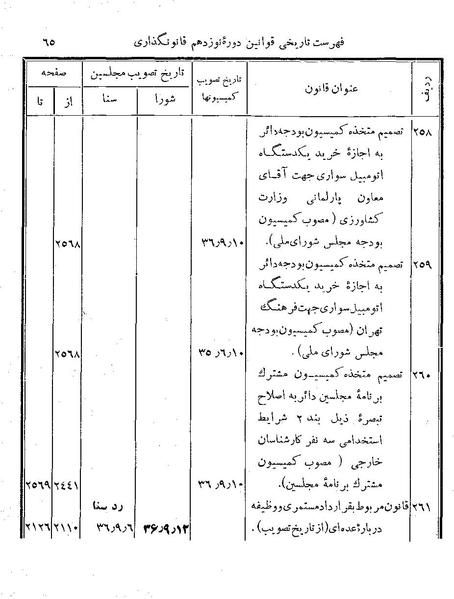 فهرست تاریخی قوانین دورهٔ نوزدهم قانونگذاری ۶۵
ردیف عنوان قانون تاریخ تصویب کمیسیونها تاریخ تصویب مجلسین صفحه
شورا سنا از تا
۲۵۸ تصمیم متخذه کمیسیون بودجه دائر
به اجازهٔ خرید یکدستگاه
اتومبیل سواری جهت آقای
معاون پارلمانی وزارت
کشاورزی (مصوب کمیسیون
بودجه مجلس شورای ملی). ۳۶٫۹٫۱۰ ۲۵۶۸
۲۵۹ تصمیم متخذه کمیسیون بودجه دائر
به اجازهٔ خرید یکدستگاه
اتومبیل سواری جهت فرهنگ
تهران (مصوب کمیسیون بودجه
مجلس شورای ملی). ۳۵٫۶٫۱۰ ۲۵۶۸
۲۶۰ تصمیم متخذه کمیسیون مشترك
برنامهٔ مجلسین دائر به اصلاح
تبصرهٔ ذیل بند ۲ شرایط
استخدامی سه نفر کارشناسان
خارجی (مصوب کمیسیون
مشترك برنامهٔ مجلسین). ۳۶٫۹٫۱۰ ۲۴۴۱ ۲۵۶۹
۲۶۱ قانون مربوط بقرارداد مستمری و وظیفه رد سنا
دربارهٔ عده‌ای (از تاریخ تصویب). ۳۶٫۹٫۱۲ ۳۶٫۹٫۶ ۲۱۱۰ ۲۱۲۶